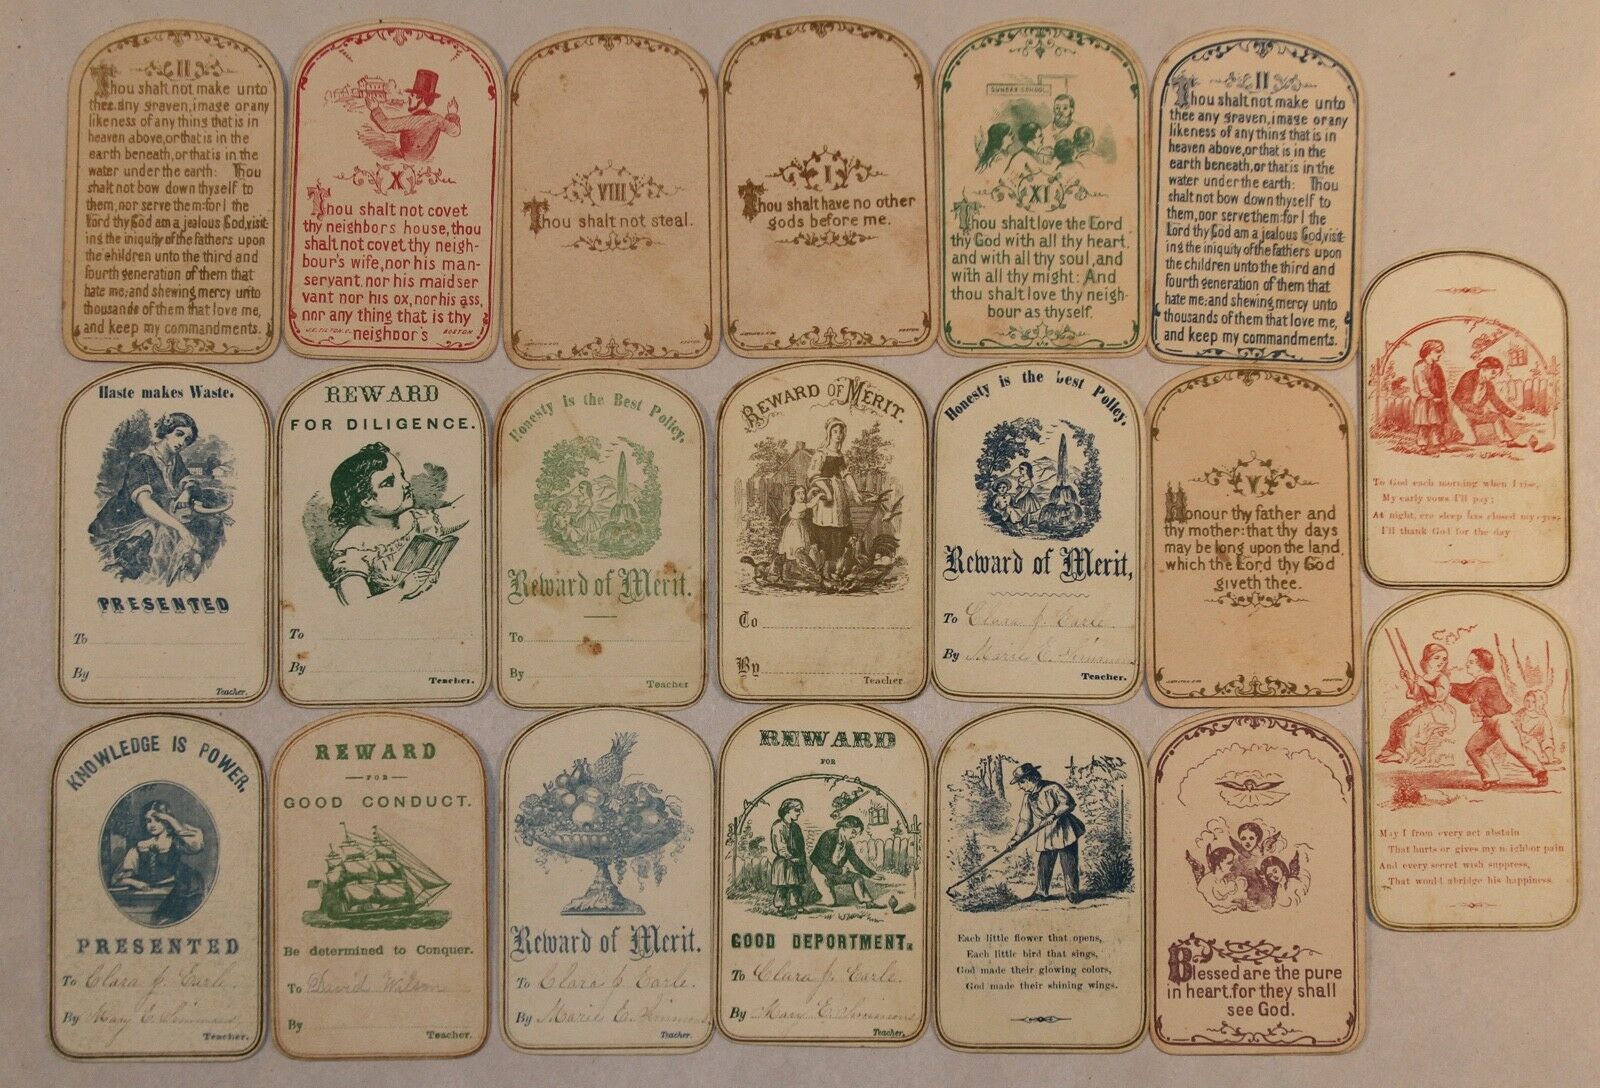 II
Thou shalt not make unto
thee any graven, image or any
likeness of any thing that is in
heaven above, or that is in the
earth beneath, or that is in the
water under the earth: Thou
shalt not bow down thyself to
them, nor serve them: for I the
Lord thy God am a jealous God, visit-
ing the iniquity of the fathers upon
the children unto the third and
fourth generation of them that
hate me; and shewing mercy unto
thousands of them that love me,
and keep my commandments.
X
Thou shalt not covet
thy neighbors house, thou
shalt not covet thy neigh-
bour's wife, nor his man-
servant, nor his maid ser
vant nor his ox, nor his ass,
nor any thing that is thy
neighbor's
J.E. TILTON, C. BOSTON
VIII
Thou shalt not steal.
I
Thou shalt have no other
gods before me.
SUNDAY SCHOOL
XI
Thou shalt love the Lord
thy God with all thy heart.
and with all thy soul, and
with all thy might: And
thou shalt love thy neigh-
bour as thyself.
II
Thou shalt not make unto
thee any graven, image or any
likeness of any thing that is in
heaven above, or that is in the
earth beneath, or that is in the
water under the earth: Thou
shalt not bow down thyself to
them, nor serve them: for I the
Lord thy God am a jealous God, visit-
ing the iniquity of the fathers upon
the children unto the third and
fourth generation of them that
hate me; and shewing mercy unto
thousands of them that love me,
and keep my commandments.
To God each morning when I rise,
My early vows I'll pay;
At night, ere sleep has closed my eyes
I'll thank God for the day
Haste makes Waste.
PRESENTED
To
By
Teacher.
REWARD
FOR DILIGENCE.
To
By
Teacher.
Honesty is the Best Policy.
Reward of Merit.
To
By
Teacher
REWARD OF MERIT.
To
By
Teacher
Honesty is the Best Policy.
Reward of Merit,
To Clara J. Earle
By Marie E. Simmons
Teacher.
V.
Honour thy father and
thy mother: that thy days
may be long upon the land
which the Lord thy God
giveth thee.
May I from every act abstain
That hurts or gives my neighbor pain
And every secret wish suppress,
That would abridge his happiness.
KNOWLEDGE IS POWER.
PRESENTED
To Clara J. Earle.
By Mary E. Simmons
Teacher.
REWARD
FOR
GOOD CONDUCT.
Be determined to Conquer.
To David Wilson
By
Teacher.
Reward of Merit.
To Clara J. Earle.
By Marie E. Simmons
Teacher.
REWARD
FOR
GOOD DEPORTMENT.
To Clara J. Earle.
By Mary E. Simmons
Teacher.
Each little flower that opens,
Each little bird that sings,
God made their glowing colors,
God made their shining wings.
Blessed are the pure
in heart. for they shall
see God.